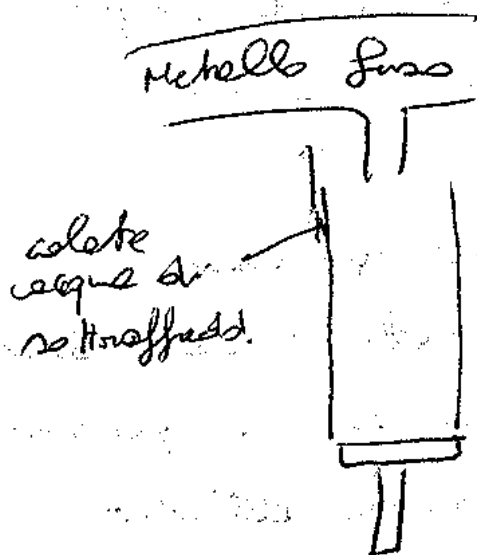 Metallo fuso
colate
acqua di
sottraffredd.